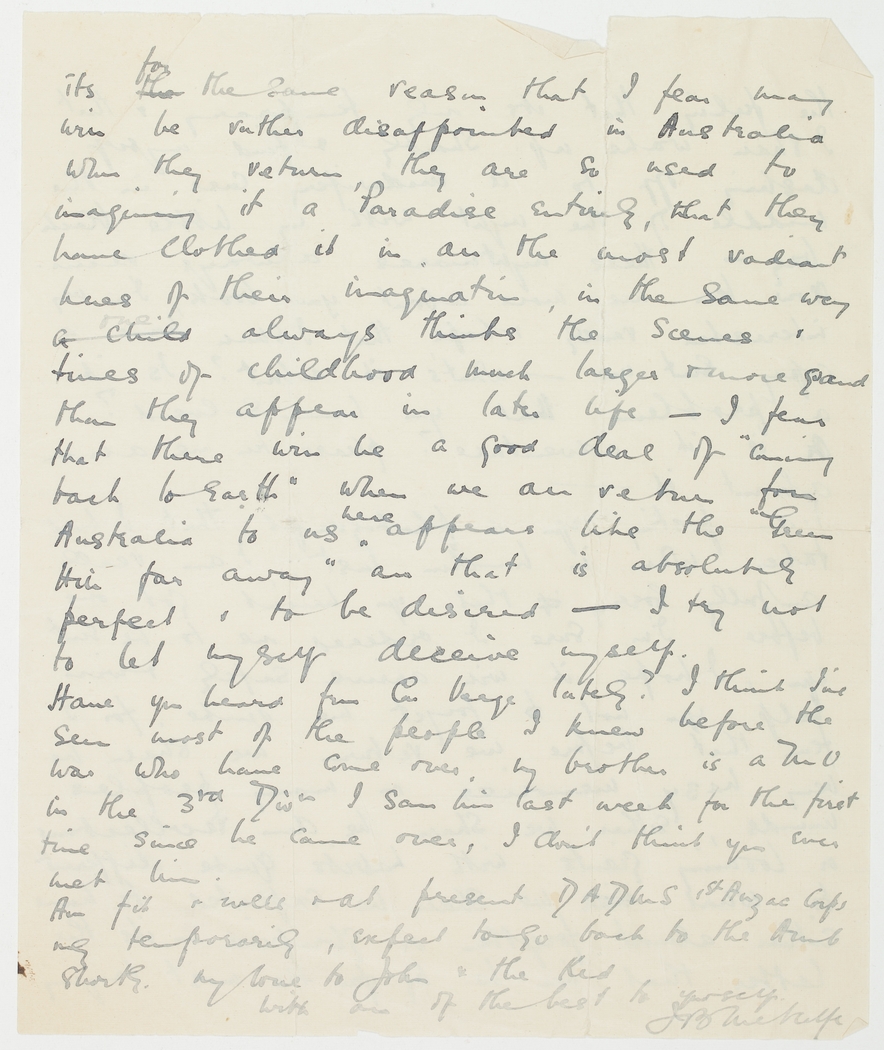 for
its the the same reason that I fear many
will be rather disappointed in Australia
when they return, they are so used to
imagining it a Paradise entirely, that they
have clothed it in all the most radiant
hues of their imagination, in the same way
a child always thinks the scenes &
times of childhood much larger & more grand
than they appear in later life — I fear
that there will be a good deal of "coming
back to Earth" when we all return for
Australia to us here appears like the "Green
Hill far away" all that is absolutely
perfect & to be desired — I try not
to let myself deceive myself.
Have you heard from Verge lately? I think I've
seen most of the people I knew before the
war who have come over, my brother is a M O
in the 3rd Divn I saw him last week for the first
time since he came over, I don't think you ever
met him.
Am fit & well & at present DADMS 1st Anzac Corps
only temporarily, expect to go back to the Amb
shortly. My love to John & the Kid
with all of the best to yourself.
J B Metcalfe